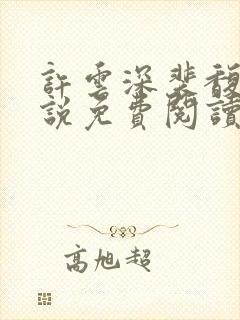 許雲深裴馥
說免費閱讀
高旭超